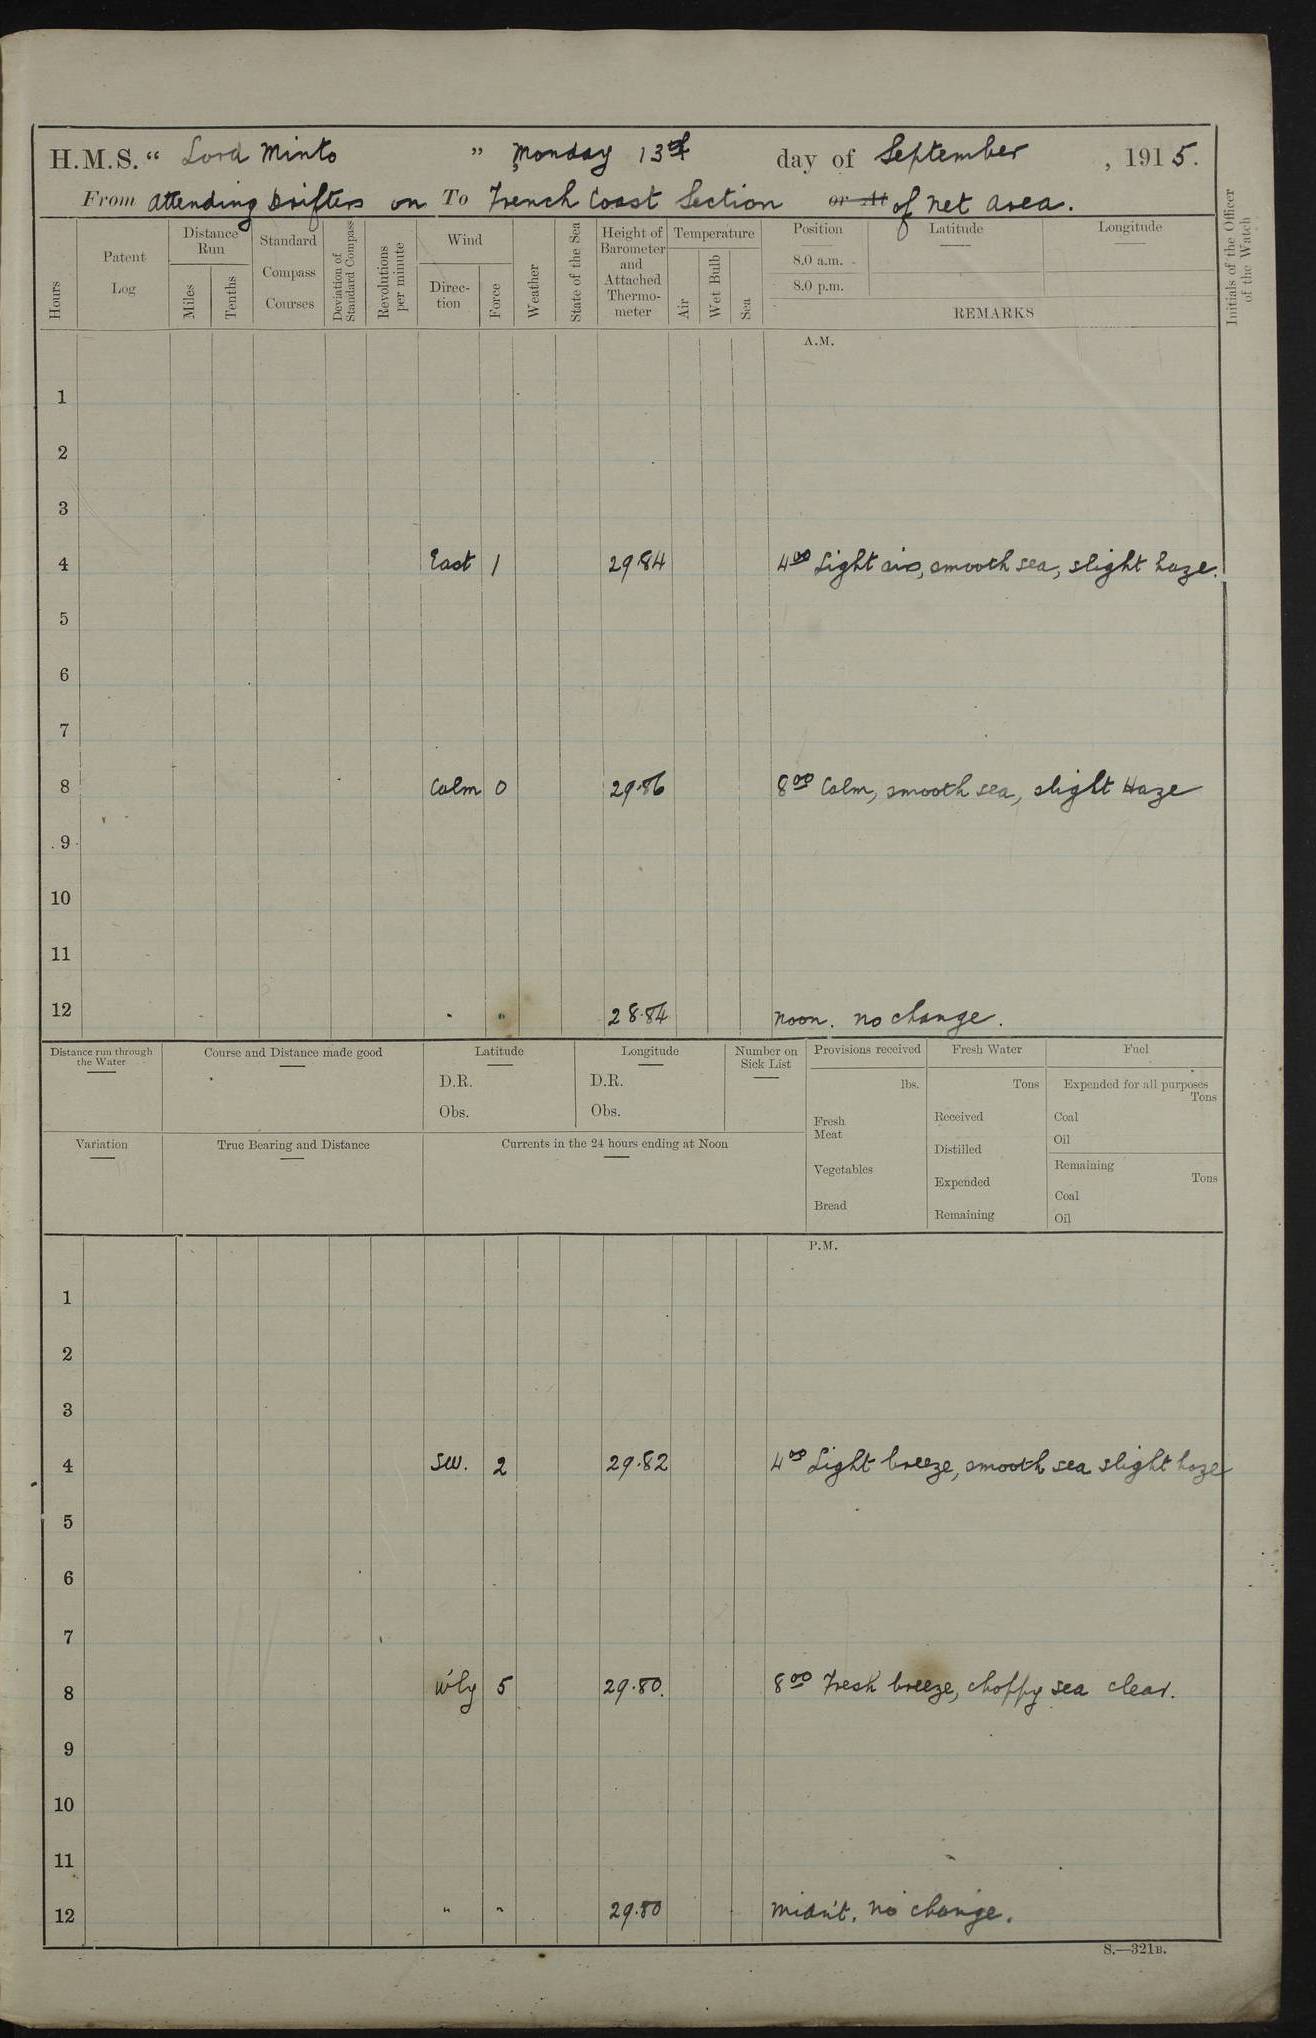 H.M.S. “ Lord Minto ” Monday 13th day of September , 1915.
From Attending Drifters on To French Coast Section or At of Net Area.
Hours
Patent Log
Distance Run
Miles
Tenths
Standard Compass Courses
Deviation of Standard Compass
Revolutions per minute
Wind
Direction
Force
Weather
State of the Sea
Height of Barometer and Attached Thermometer
Temperature
Air
Wet Bulb
Sea
Position
8.0 a.m.
8.0 p.m.
Latitude
Longitude
REMARKS
Initials of the Officer of the Watch
A.M.
1
2
3
4 East 1 29.84 4 00 Light airs, smooth sea, slight haze.
5
6
7
8 Calm 0 29.86 8 00 Calm, smooth sea, slight Haze
9
10
11
12 " " 28.84 Noon. no change.
Distance run through the Water
Course and Distance made good
Latitude
D.R.
Obs.
Longitude
D.R.
Obs.
Number on Sick List
Provisions received
lbs.
Fresh Meat
Vegetables
Bread
Fresh Water
Tons
Received
Distilled
Expended
Remaining
Fuel
Expended for all purposes
Tons
Coal
Oil
Remaining
Tons
Coal
Oil
Variation
True Bearing and Distance
Currents in the 24 hours ending at Noon
P.M.
1
2
3
4 SW. 2 29.82 4 00 Light breeze, smooth sea slight haze
5
6
7
8 W'ly 5 29.80. 8 00 Fresh breeze, choppy sea clear.
9
10
11
12 " " 29.80 Midn't. No change.
S.—321B.